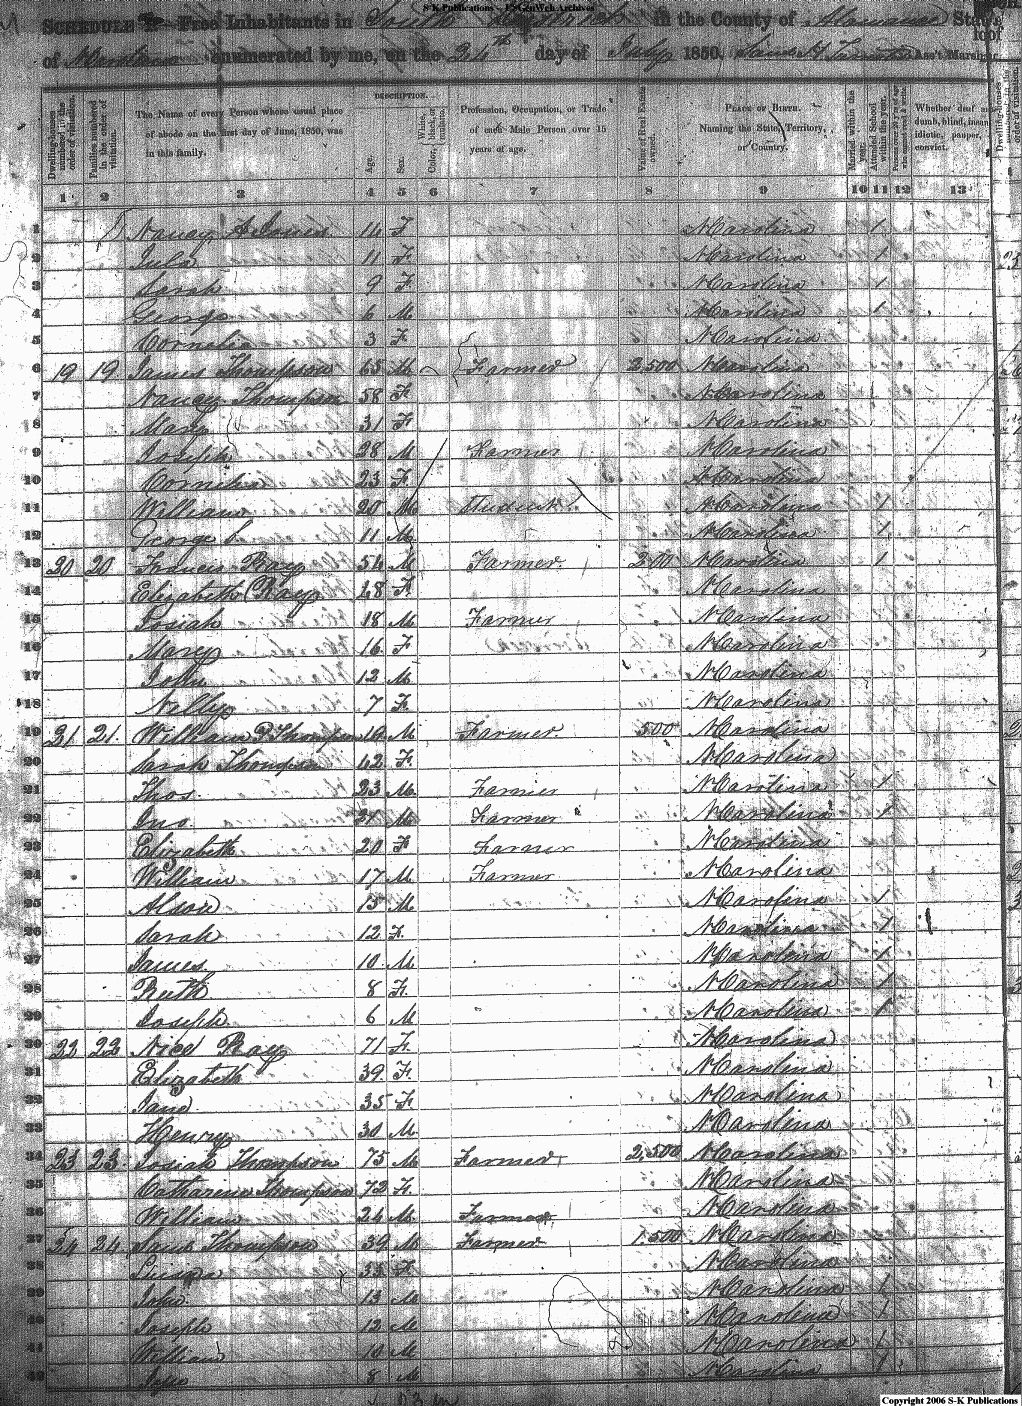 S-K Publications - USGenWeb Archives
SCHEDULE I. Free Inhabitants in South District in the County of Alamance State
of enumerated by me, on the 24th day of July 1850. Ass't Marshal
Dwelling-houses numbered in the order of visitation.
Families numbered in the order of visitation.
The Name of every Person whose usual place of abode on the first day of June, 1850, was in this family.
DESCRIPTION.
Age.
Sex.
Color, White, black, or mulatto.
Profession, Occupation, or Trade of each Male Person over 15 years of age.
Value of Real Estate owned.
PLACE OF BIRTH. Naming the State, Territory, or Country.
Married within the year.
Attended School within the year.
Whether deaf and dumb, blind, insane, idiotic, pauper, convict.
1 2 3 4 5 6 7 8 9 10 11 12 13
1 Nancy A 14 F NCarolina 1
2 Jula 11 F NCarolina 1
3 Sarah 9 F NCarolina 1
4 George 6 M NCarolina 1
5 Cornelia 3 F NCarolina
6 19 19 James Thompson 65 M Farmer 2,500 NCarolina
7 Nancy Thompson 58 F NCarolina
8 Mary 31 F NCarolina
9 Joseph 28 M Farmer NCarolina
10 Cornelia 23 F NCarolina
11 William 20 M Student NCarolina 1
12 George C 11 M NCarolina 1
13 20 20 Francis Ray 54 M Farmer 200 NCarolina 1
14 Elizabeth Ray 48 F NCarolina
15 Josiah 18 M Farmer NCarolina
16 Mary 16 F NCarolina
17 John 12 M NCarolina
18 Nelly 7 F NCarolina
19 21 21 William P Thompson M Farmer 500 NCarolina
20 Sarah Thompson 42 F NCarolina
21 Thos. 23 M Farmer NCarolina 1
22 Jno. 21 M Farmer NCarolina 1
23 Elizabeth 20 F Farmer NCarolina
24 William 17 M Farmer NCarolina
25 Alson 15 M NCarolina 1
26 Sarah 12 F NCarolina 1
27 James 10 M NCarolina 1
28 Ruth 8 F NCarolina 1
29 Joseph 6 M NCarolina 1
30 22 22 Nice Ray 71 F NCarolina
31 Elizabeth 39 F NCarolina
32 Jane 35 F NCarolina
33 Henry 30 M NCarolina
34 23 23 Josiah Thompson 75 M Farmer 2,500 NCarolina
35 Catharine Thompson 72 F NCarolina
36 William 24 M Farmer NCarolina
37 24 24 Saml Thompson 39 M Farmer 1,500 NCarolina
38 F NCarolina
39 John 13 M NCarolina 1
40 Joseph 12 M NCarolina 1
41 William 10 M NCarolina 1
42 8 M NCarolina 1
Copyright 2006 S-K Publications